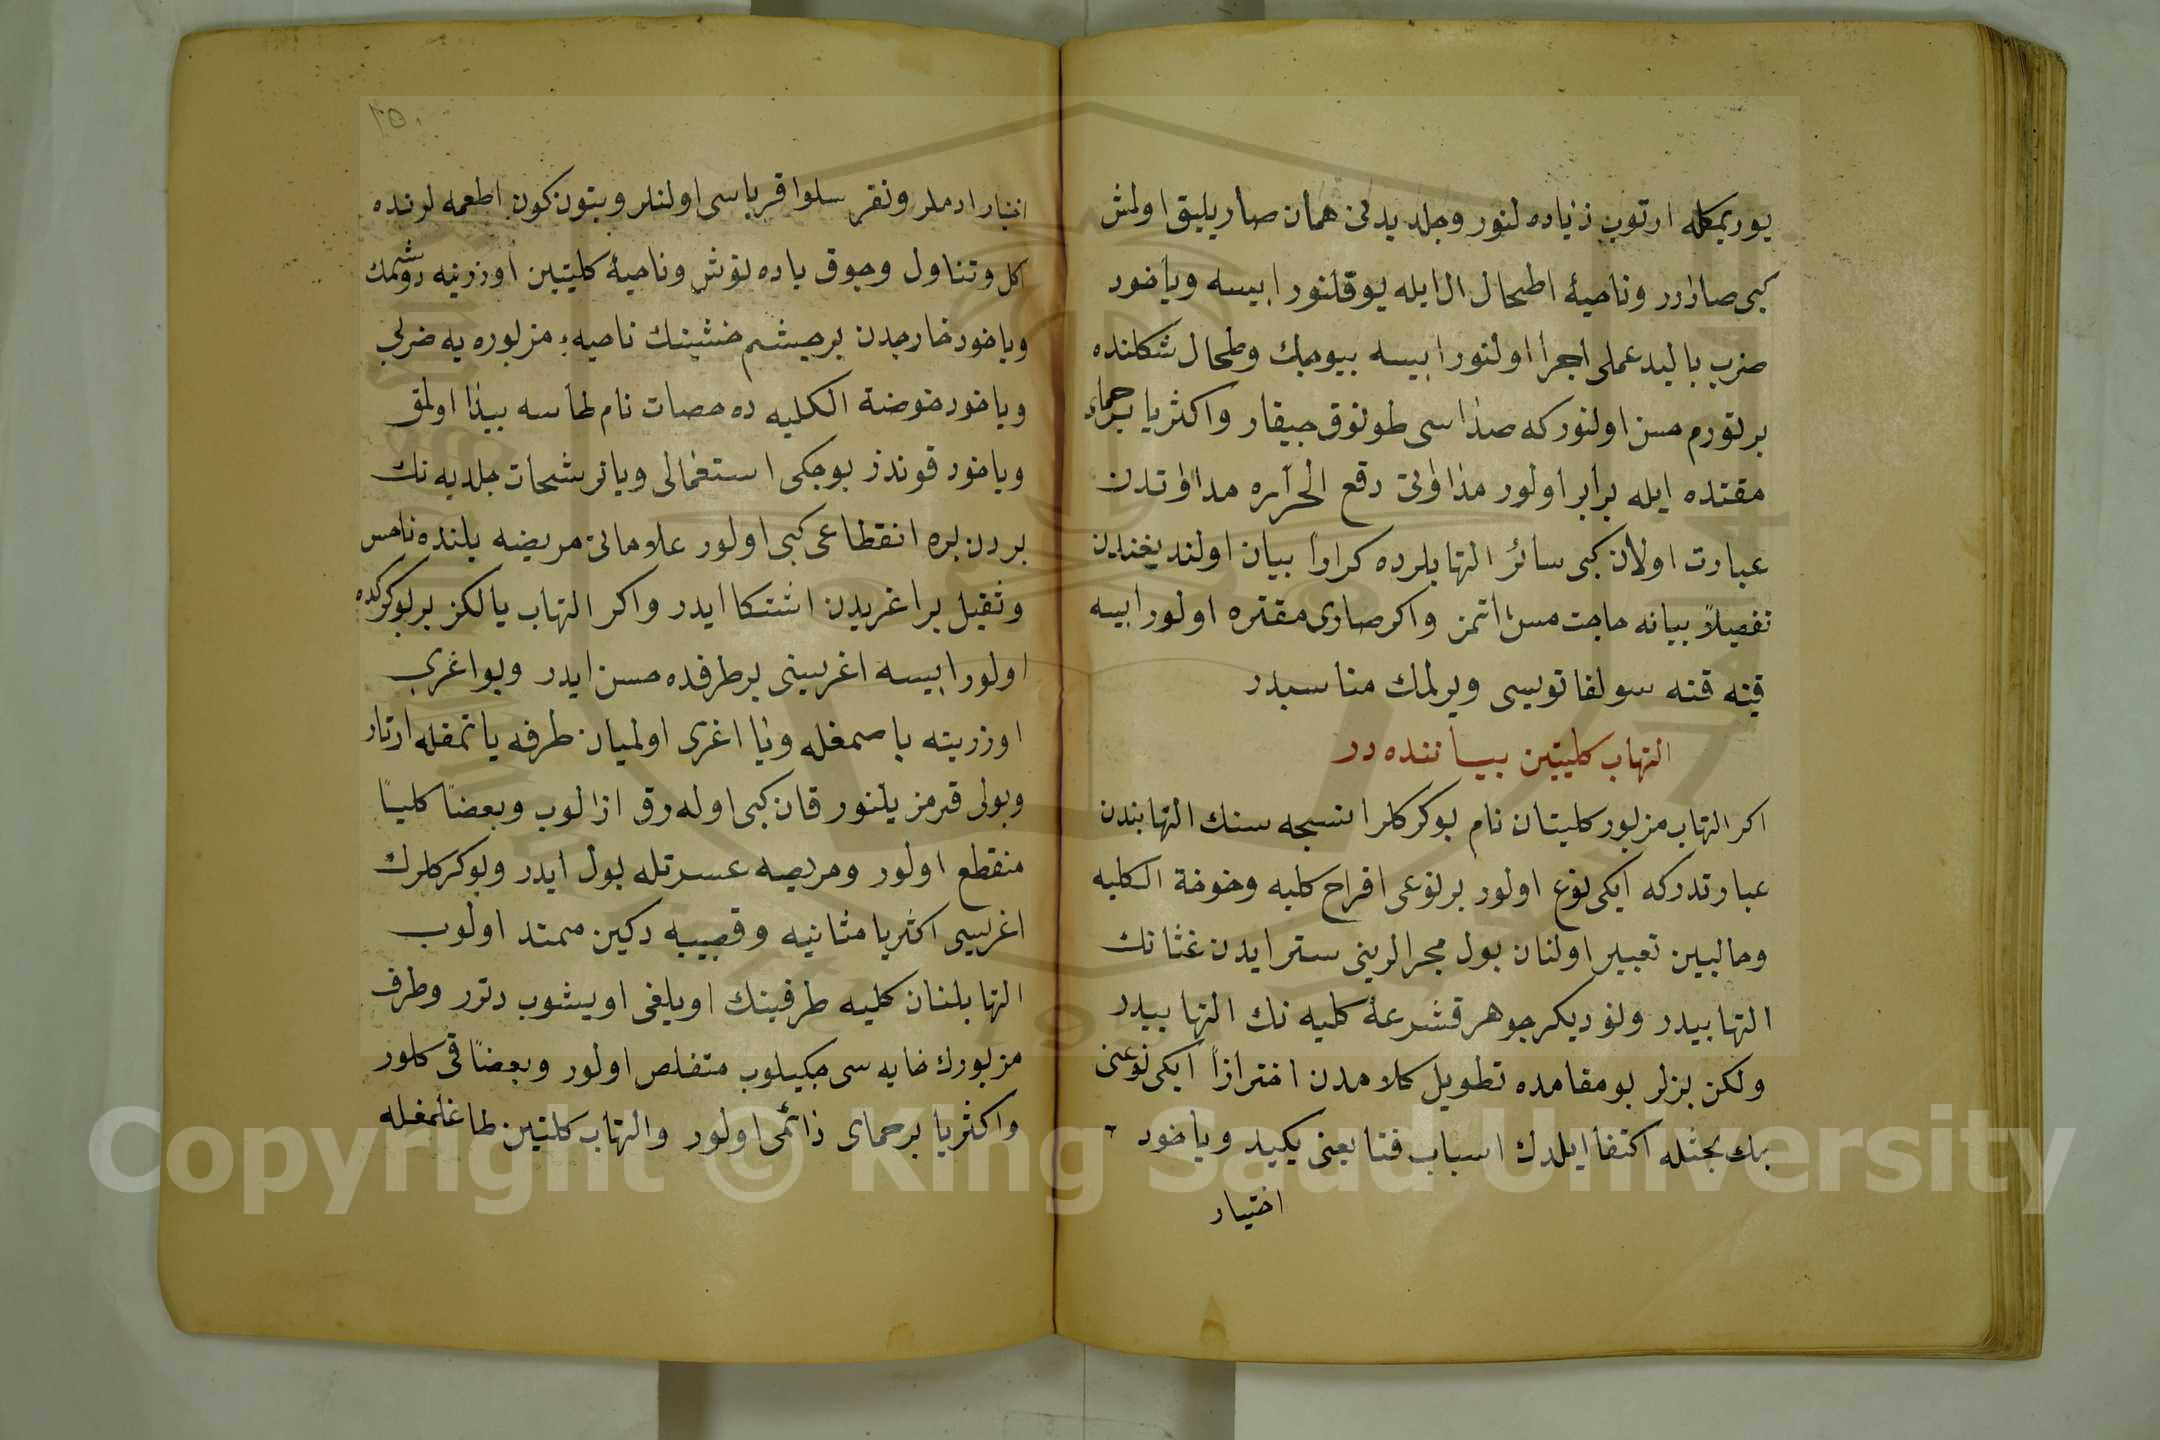 يوريمكله ارتوب زياده لنور وجلد يدنى همان صاريليق اولمش
كبى صارارر وناحيهٔ اطحال ال ايله يوقلنور ايسه وياخود
ضرب باليد عملى اجرا اولنور ايسه بيوجك وطحال شكلنده
برتورم حسن اولنور كه صداسى طونوق چيقار واكثريا برحماى
مقتده ايله برابر اولور مداواتى رقع الحراره مداواتدن
عبارت اولان كبى سائر التهابلرده كراراً بيان اولنديغندن
تفصيلاً بيانه حاجت مسن اتمز واكر صارى مقتره اولور ايسه
قينه قنه سولفاتويسى ويرلمك مناسبدر
التهاب كليتين بيا ننده در
اكر التهاب مزبور كليتان نام بوكركلر انسجه سنك التهابندن
عبارتدركه ايكى نوع اولور برنوعى اقراح كليه وخوخة الكليه
وحالبين تعبير اولنان بول مجرالرينى ستر ايدن غشانك
التهابيدر ونو ديكر جوهر قشرعهٔ كليه نك التهابيدر
ولكن بزلر بومقامده تطويل كلامدن احترازاً ايكى نوعنى
بك بحثله اكتفا ايلدك اسباب فتا يعنى يكيد وياخود
اختيار
٢٥٠
اختيار ادملر ونقر سلوا قرباسى اولنلر وبتون كون اطعمه لرنده
اكل وتناول وچوق باده نوش وناحيهٔ كليتين اوزرينه دوشمك
وياخود خارجدن برجسم خشينك ناحيهٔ مزبوره يه ضربى
وياخود خوضة الكليه ده حصات نام طاسه بيدا اولمق
وياخود قوندز بوجكى استعمالى وياترشحات جلديه نك
بردن بره انقطاعى كبى اولور علاماتى مريضه بلنده ناحس
وثقيل براغريدن اشتكا ايدر واكر التهاب يالكز بربوكركده
اولور ايسه اغريسنى برطرفده حسن ايدر وبواغرى
اوزرينه باصمغله ويا اغرى اولميان طرفه ياتمقله ارتار
وبولى قرمز يلنور قان كبى اوله رق ازالوب وبعضاً كلياً
منقطع اولور ومريضه عسرتله بول ايدر وبوكركلرك
اغريسى اكثريا مثانيه وقصيبه دكين ممتد اولوب
التهابلنان كليه طرفينك اويلغى اويشوب دتزر وطرف
مزبورك خايه سى چكيلوب متقلص اولور وبعضاً قى كلور
واكثريا برحماى دائمى اولور والتهاب كلتين طاغلمغله
Copyright © King Saud University